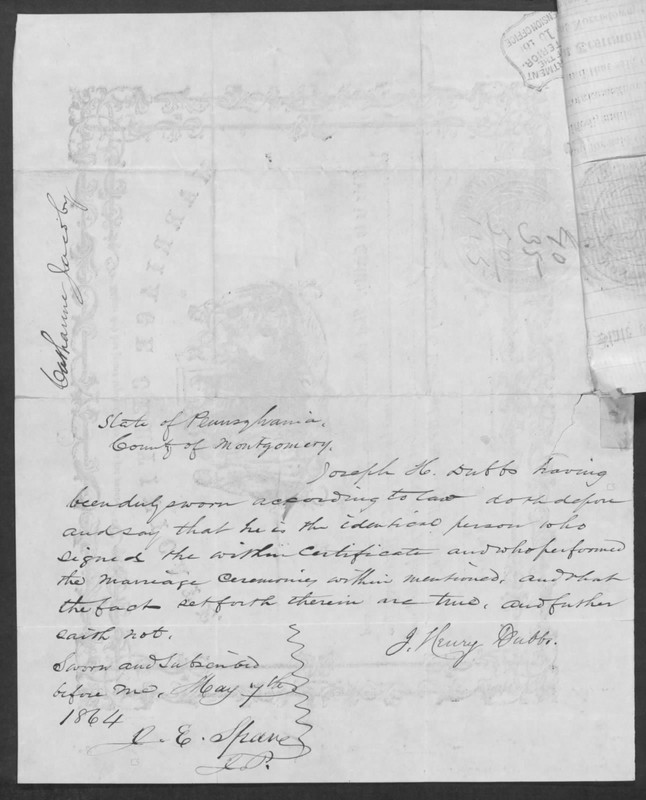 Catharine Jacoby
40
35
State of Pennsylvania,
County of Montgomery.
Joseph H. Dubbs having
been duly sworn according to law doth depose
and say that he is the identical person who
signed the within Certificate and who performed
the marriage ceremonies within mentioned, and that
the fact set forth therein are true, and futher
saith not.
J. Henry Dubbs.
Sworn and Subscribed
before me, May 7th
1864
J. P.